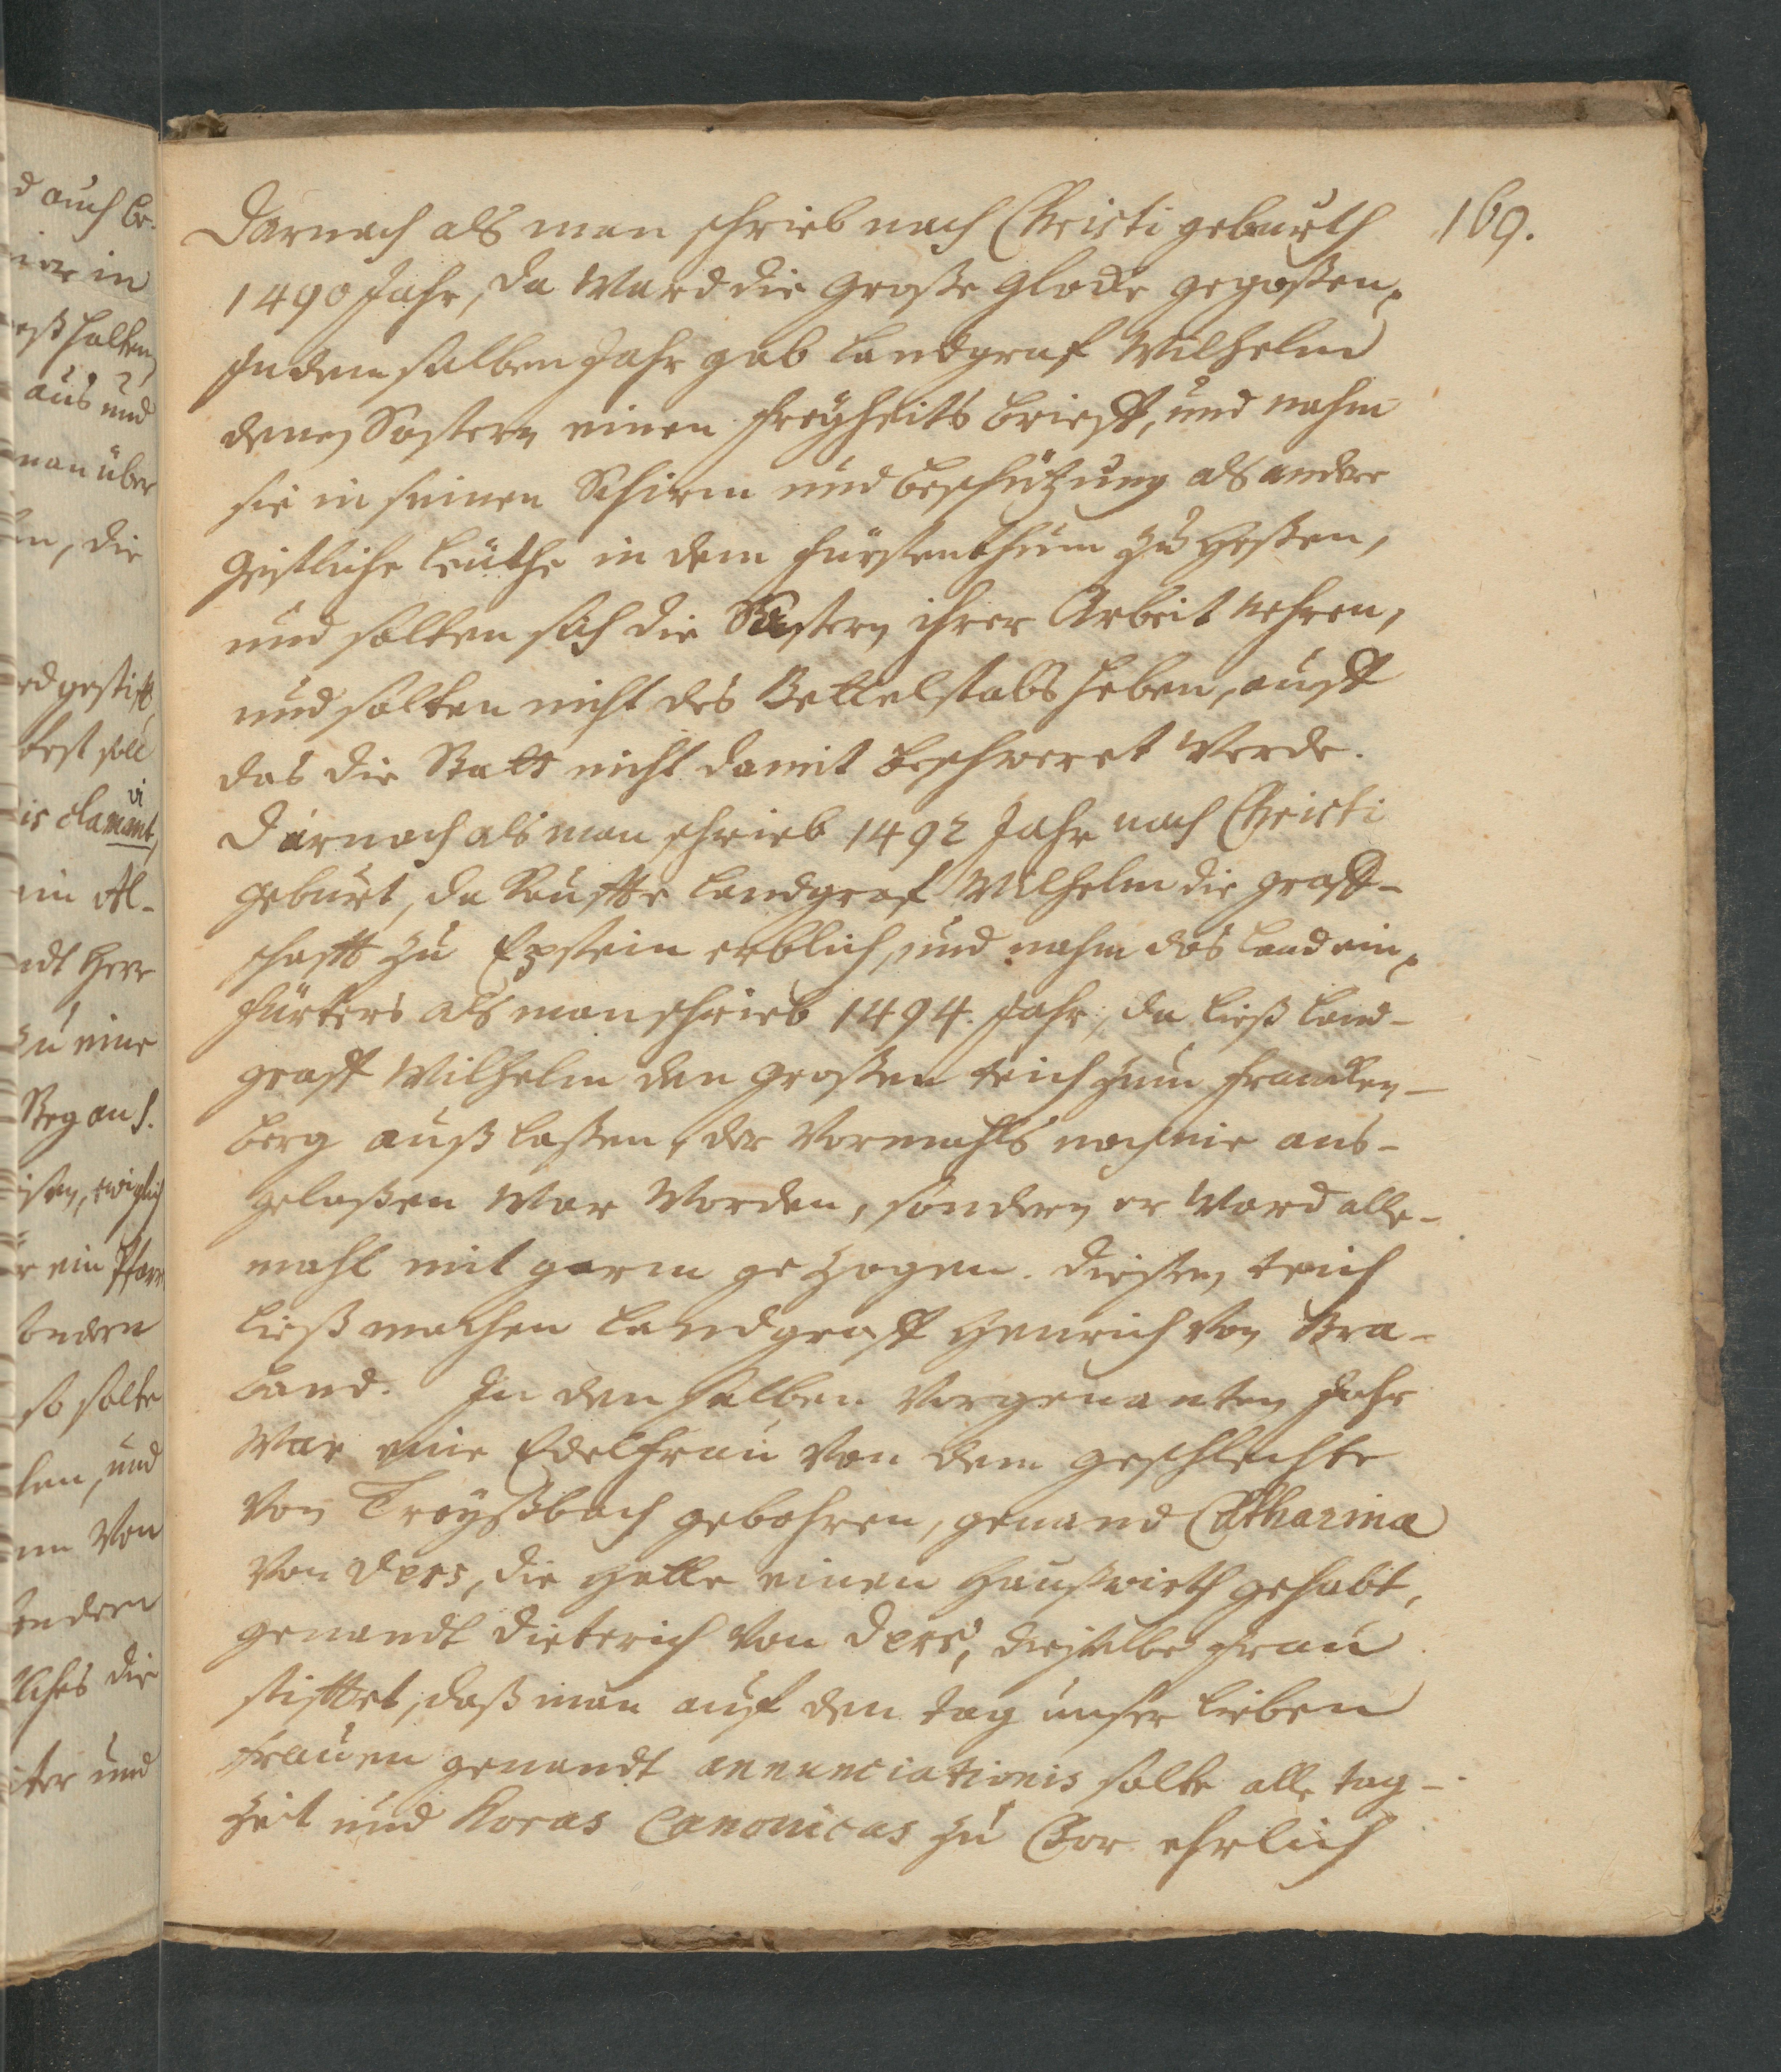 169.
Darnach als man schrieb nach Christi geburth
1490 Jahr, da ward die große glocke gegoßen.
In dem selben Jahr gab Landgraf Wilhelm
denen Süstern einen freyheits brieff, und nahm
sie in seinen Schirm und beschützung als andere
Geistliche leuthe in dem fürstenthum zu Heßen,
und solten sich die Süstern ihrer Arbeit nehren,
und solten nicht des Bettelstabs heben, auff
das die Statt nicht damit beschweret werde.
Darnach als man schrieb 1492 Jahr nach Christi
geburt, da kauffte Landgraf Wilhelm die graff-
schafft zu Epstein erblich, und nahm das Land ein.
fürters als man schrieb 1494. Jahr, da ließ Land-
graff Wilhelm den großen teich zum francken-
berg auß laßen, der vormahls noch nie aus-
gelaßen war worden, sondern er ward alle-
mahl mit garn gezogen. dießen teich
ließ machen Landgraff Henrich von Bra-
band. In den selben vorgenanten Jahr
war eine Edelfrau von dem geschlechte
von Treyßbach gebohren, genand Catharina
von Ders, die hatte einen haußwirth gehabt,
genandt Dieterich von Ders, dieselbe frau
stifftet, daß man auf den tag unser lieben
frauen genandt annunciationis solte alle tag-
zeit und horas Canonicas zu Chor ehrlich
d auch be-
ier in
halten,
aus und
man über
en, die
rd gestifft
soll
is clamant,
vi
ein Al-
ndt herr
zu eine
Weg an S.
ewiglich
r ein Pfarr
ondern
so solte
len, und
nn von
ndern
liches die
iter und